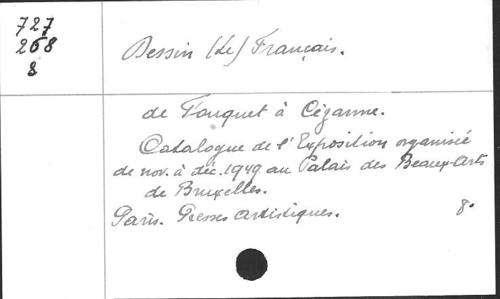 727
268
8
Dessin (Le) Français.
de Fouquet à Cézanne.
Catalogue de l'Exposition organisée
de nov. à déc. 1949 au Palais des Beaux-Arts
de Bruxelles.
Paris. Presses artistiques. 8°